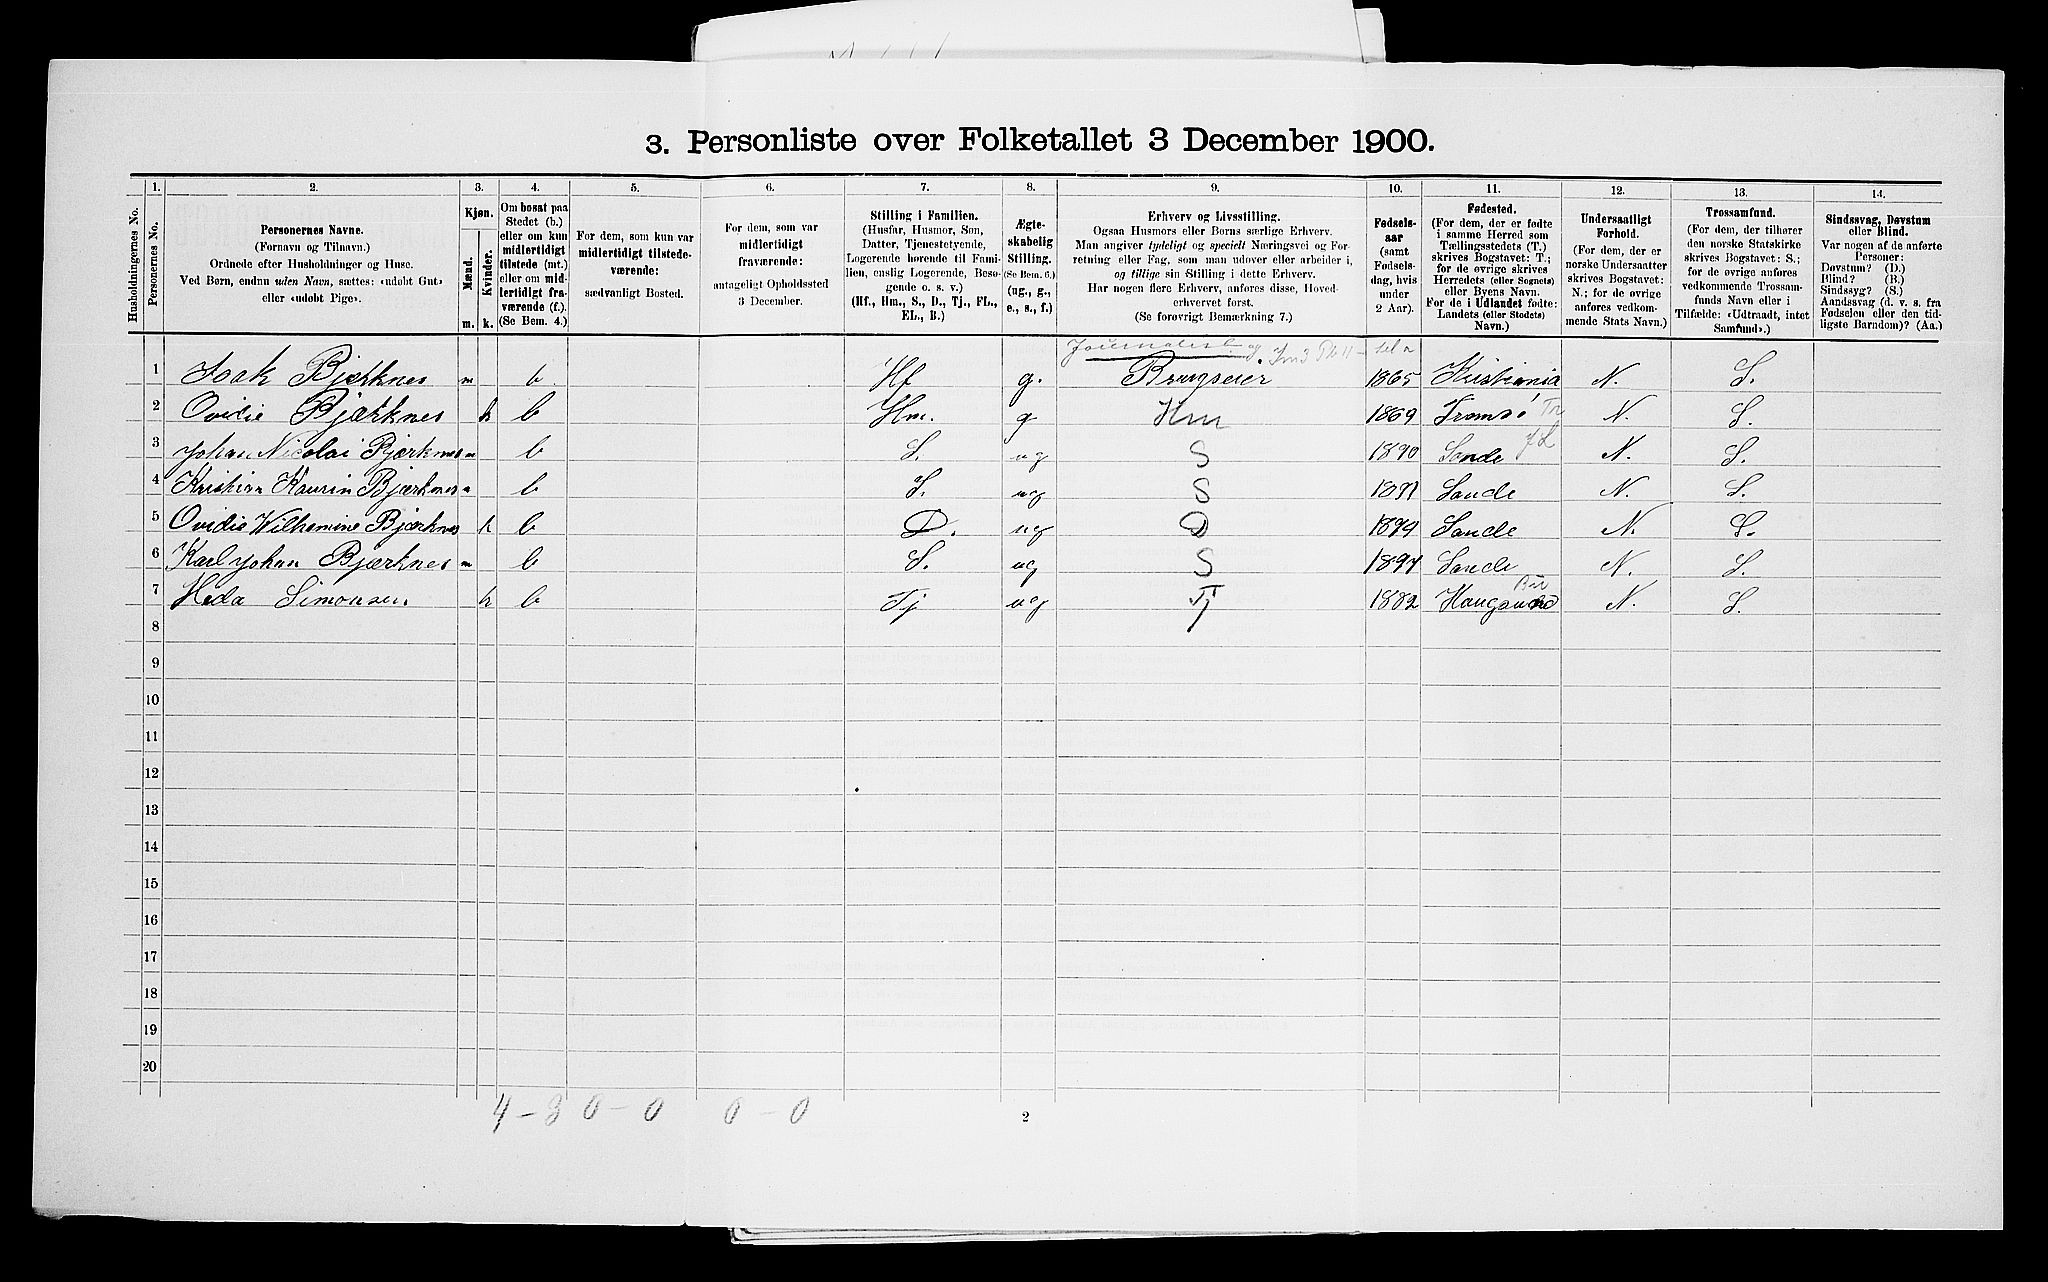 3. Personliste over Folketallet 3 December 1900.
Husholdningernes No.
1.
Personernes No.
2.
Personernes Navne.
(Fornavn og Tilnavn.)
Ordnede efter Husholdninger og Huse.
Ved Børn, endnu uden Navn, sættes: «udøbt Gut»
eller «udøbt Pige».
3.
Kjøn.
Mænd.
Kvinder.
m.
k.
4.
Om bosat paa
Stedet (b.)
eller om kun
midlertidigt
tilstede (mt.)
eller om mid-
lertidigt fra-
værende (f.).
(Se Bem. 4.)
5.
For dem, som kun var
midlertidigt tilstede-
værende:
sædvanligt Bosted.
6.
For dem, som var
midlertidigt
fraværende:
antageligt Opholdssted
3 December.
7.
Stilling i Familien.
(Husfar, Husmor, Søn,
Datter, Tjenestetyende,
Logerende hørende til Fami-
lien, enslig Logerende, Besø-
gende o. s. v.)
(Hf., Hm., S., D., Tj., FL.,
EL., B.)
8.
Ægte-
skabelig
Stilling.
(Se Bem. 6.)
(ug., g.,
e., s., f.)
9.
Erhverv og Livsstilling.
Ogsaa Husmors eller Børns særlige Erhverv.
Man angiver tydeligt og specielt Næringsvei og For-
retning eller Fag, som man udøver eller arbeider i,
og tillige sin Stilling i dette Erhverv.
Har nogen flere Erhverv, anføres disse, Hoved-
erhvervet først.
(Se forøvrigt Bemærkning 7.)
10.
Fødsels-
aar
(samt
Fødsels-
dag, hvis
under
2 Aar).
11.
Fødested.
(For dem, der er fødte
i samme Herred som
Tællingsstedets (T.)
skrives Bogstavet: T.;
for de øvrige skrives
Herredets (eller Sognets)
eller Byens Navn.
For de i Udlandet fødte:
Landets (eller Stedets)
Navn.)
12.
Undersaatligt
Forhold.
(For dem, der er
norske Undersaatter
skrives Bogstavet:
N.; for de øvrige
anføres vedkom-
mende Stats Navn.)
13.
Trossamfund.
(For dem, der tilhører
den norske Statskirke
skrives Bogstavet: S.;
for de øvrige anføres
vedkommende Trossam-
funds Navn eller i
Tilfælde: «Udtraadt, intet
Samfund».)
14.
Sindssvag, Døvstum
eller Blind.
Var nogen af de anførte
Personer:
Døvstum? (D.)
Blind? (B.)
Sindssyg? (S.)
Aandssvag (d. v. s. fra
Fødselen eller den tid-
ligste Barndom)? (Aa.)
Journalist og
1 Isak Bjerknes m b Hf g. Brugseier 1865 Kristiania N. S.
2 Ovidie Bjærknes k b Hm. g Hm 1869 Tromsø Tr N. S.
3 Johan Nicolai Bjærknes m b S. ug S 1890 Sande JL N. S.
4 Kristian Kaurin Bjærknes m b S. ug S 1891 Sande N. S.
5 Ovidie Wilhemine Bjærknes k b D. ug D 1894 Sande N. S.
6 Karl Johan Bjærknes m b S. ug S 1897 Sande N. S.
7 Heda Simonsen k b Tj ug Tj 1882 Haugsund Bu N. S.
8
9
10
11
12
13
14
15
16
17
18
19
20
4 - 3 0 - 0 0 - 0
2